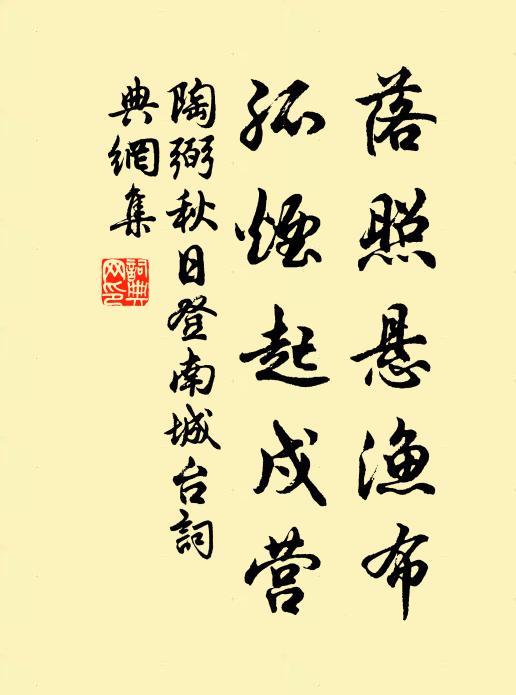 落照悬漁布
孤煙起戍营
陶弼秋日登南城台詞
典網集
詞典
网印